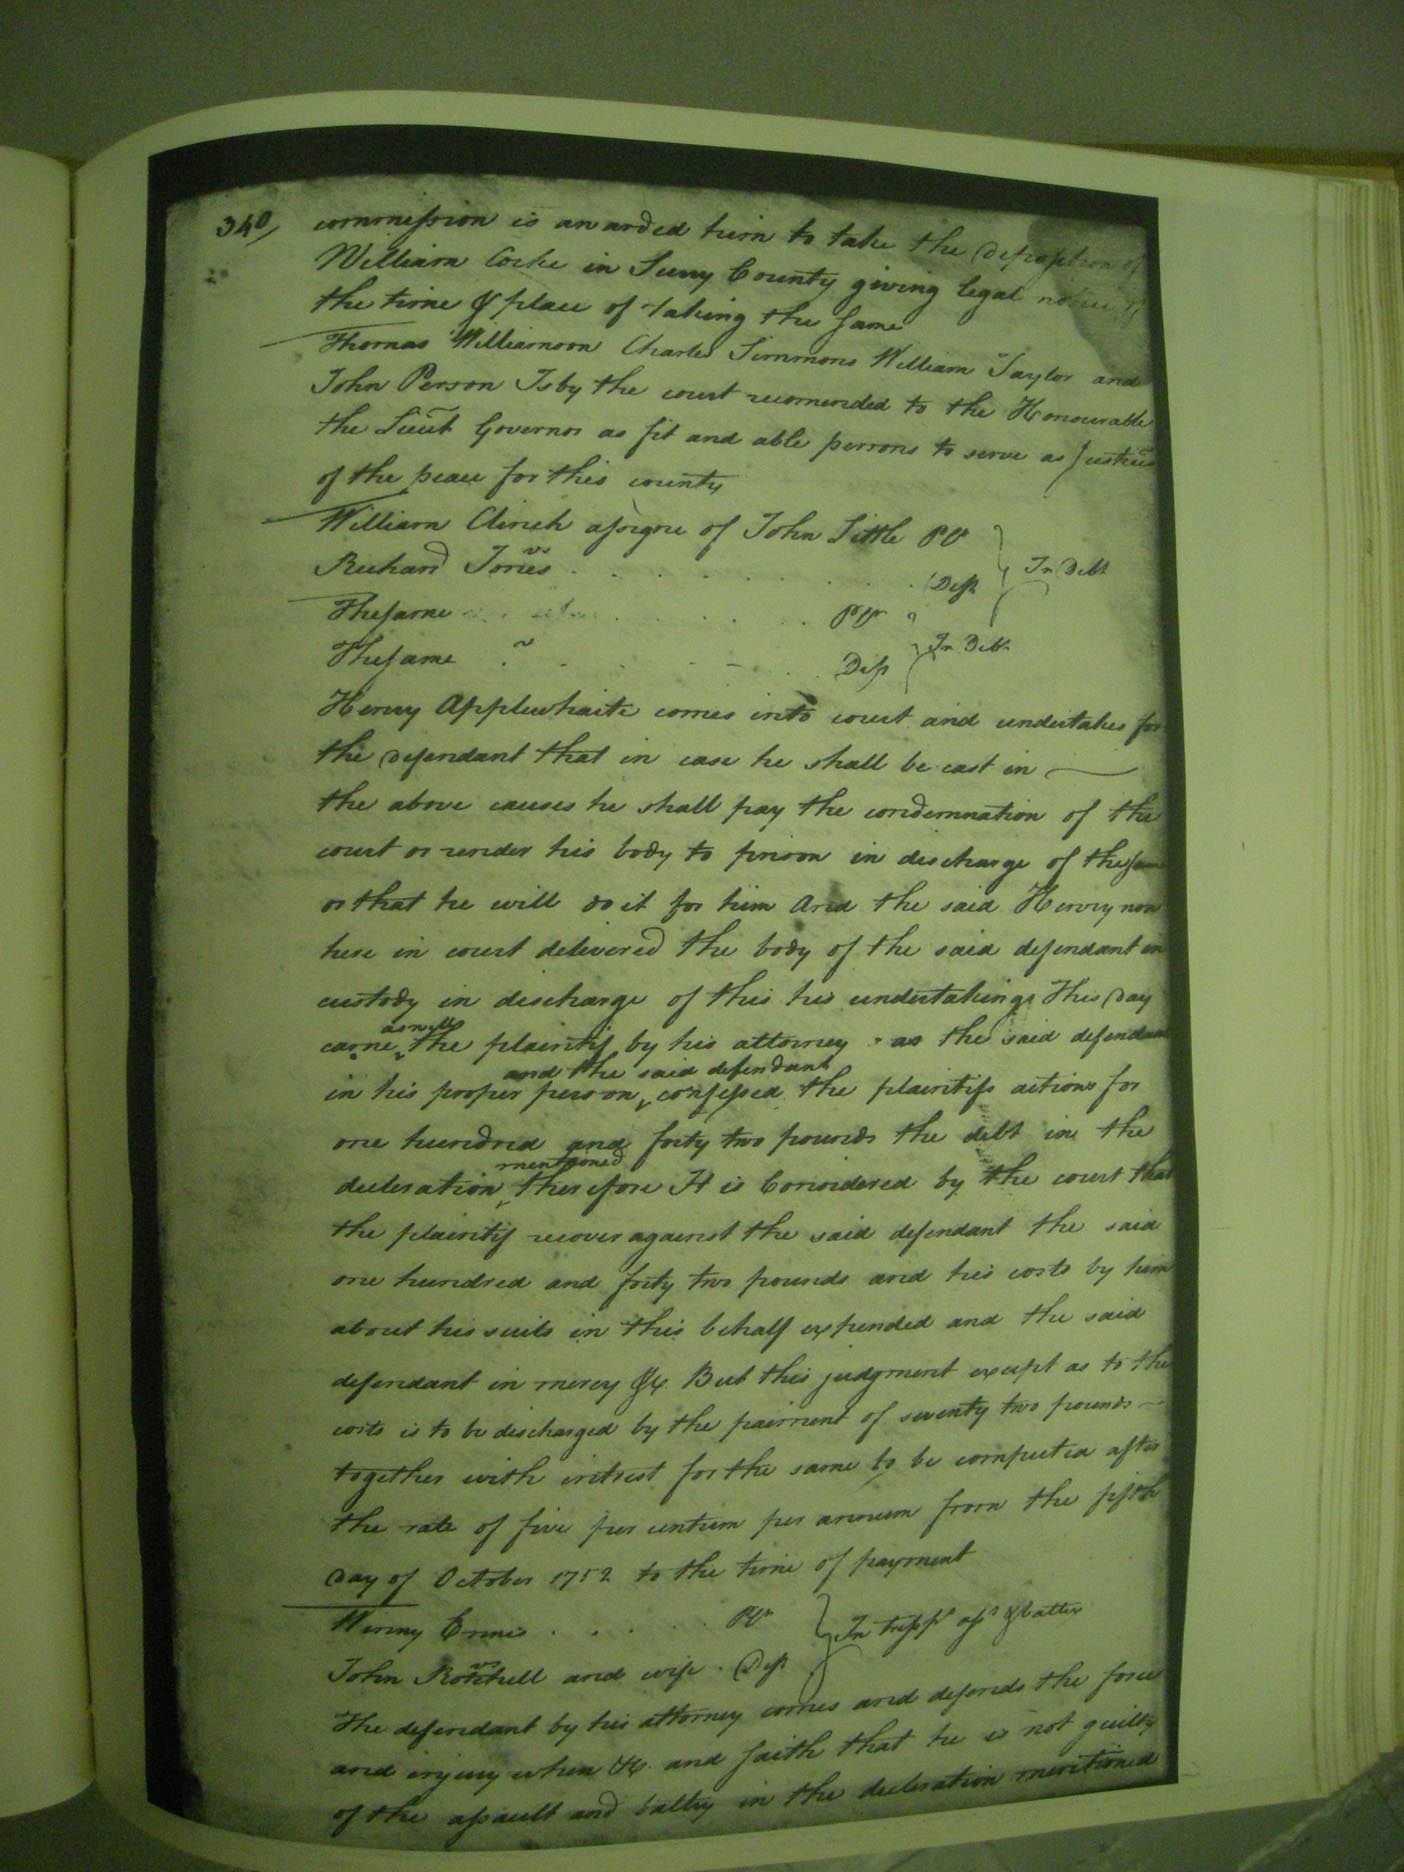 340/ commission is awarded him to take the deposition of
William Cocke in Surry County giving legal notice of
the time & place of taking the same
Thomas Williamson Charles Simmons William Taylor and
John Person Is by the court recomended to the Honourable
the Lieut Governor as fit and able persons to serve as Justices
of the peace for this county
William Clinch assigne of John Little Plt
vs
Richard Jones . . . . . . . . Deft } In Debt
The same . . . . Plt
The same . . . . Deft } In Debt
Henry Applewhaite comes into court and undertakes for
the defendant that in case he shall be cast in
the above causes he shall pay the condemnation of the
court or render his body to prison in discharge of the same
or that he will do it for him And the said Henry now
here in court delivered the body of the said defendant in
custody in discharge of this his undertaking This day
came as well the plaintif by his attorney as the said defendant
in his proper person and the said defendant confessed the plaintifs actions for
one hundred and forty two pounds the debt in the
decleration mentioned therefore It is Considered by the court that
the plaintif recover against the said defendant the said
one hundred and forty two pounds and his costs by him
about his suits in this behalf expended and the said
defendant in mercy &c. But this judgment except as to the
costs is to be discharged by the paiment of seventy two pounds
together with intrest for the same to be computed after
the rate of five per centum per annum from the fifth
day of October 1752 to the time of payment
Plt
vs
John and wife . Deft } In tresps asst & batter
The defendant by his attorney comes and defends the force
and injury when &c. and saith that he is not guilty
of the assault and battry in the decleration mentioned